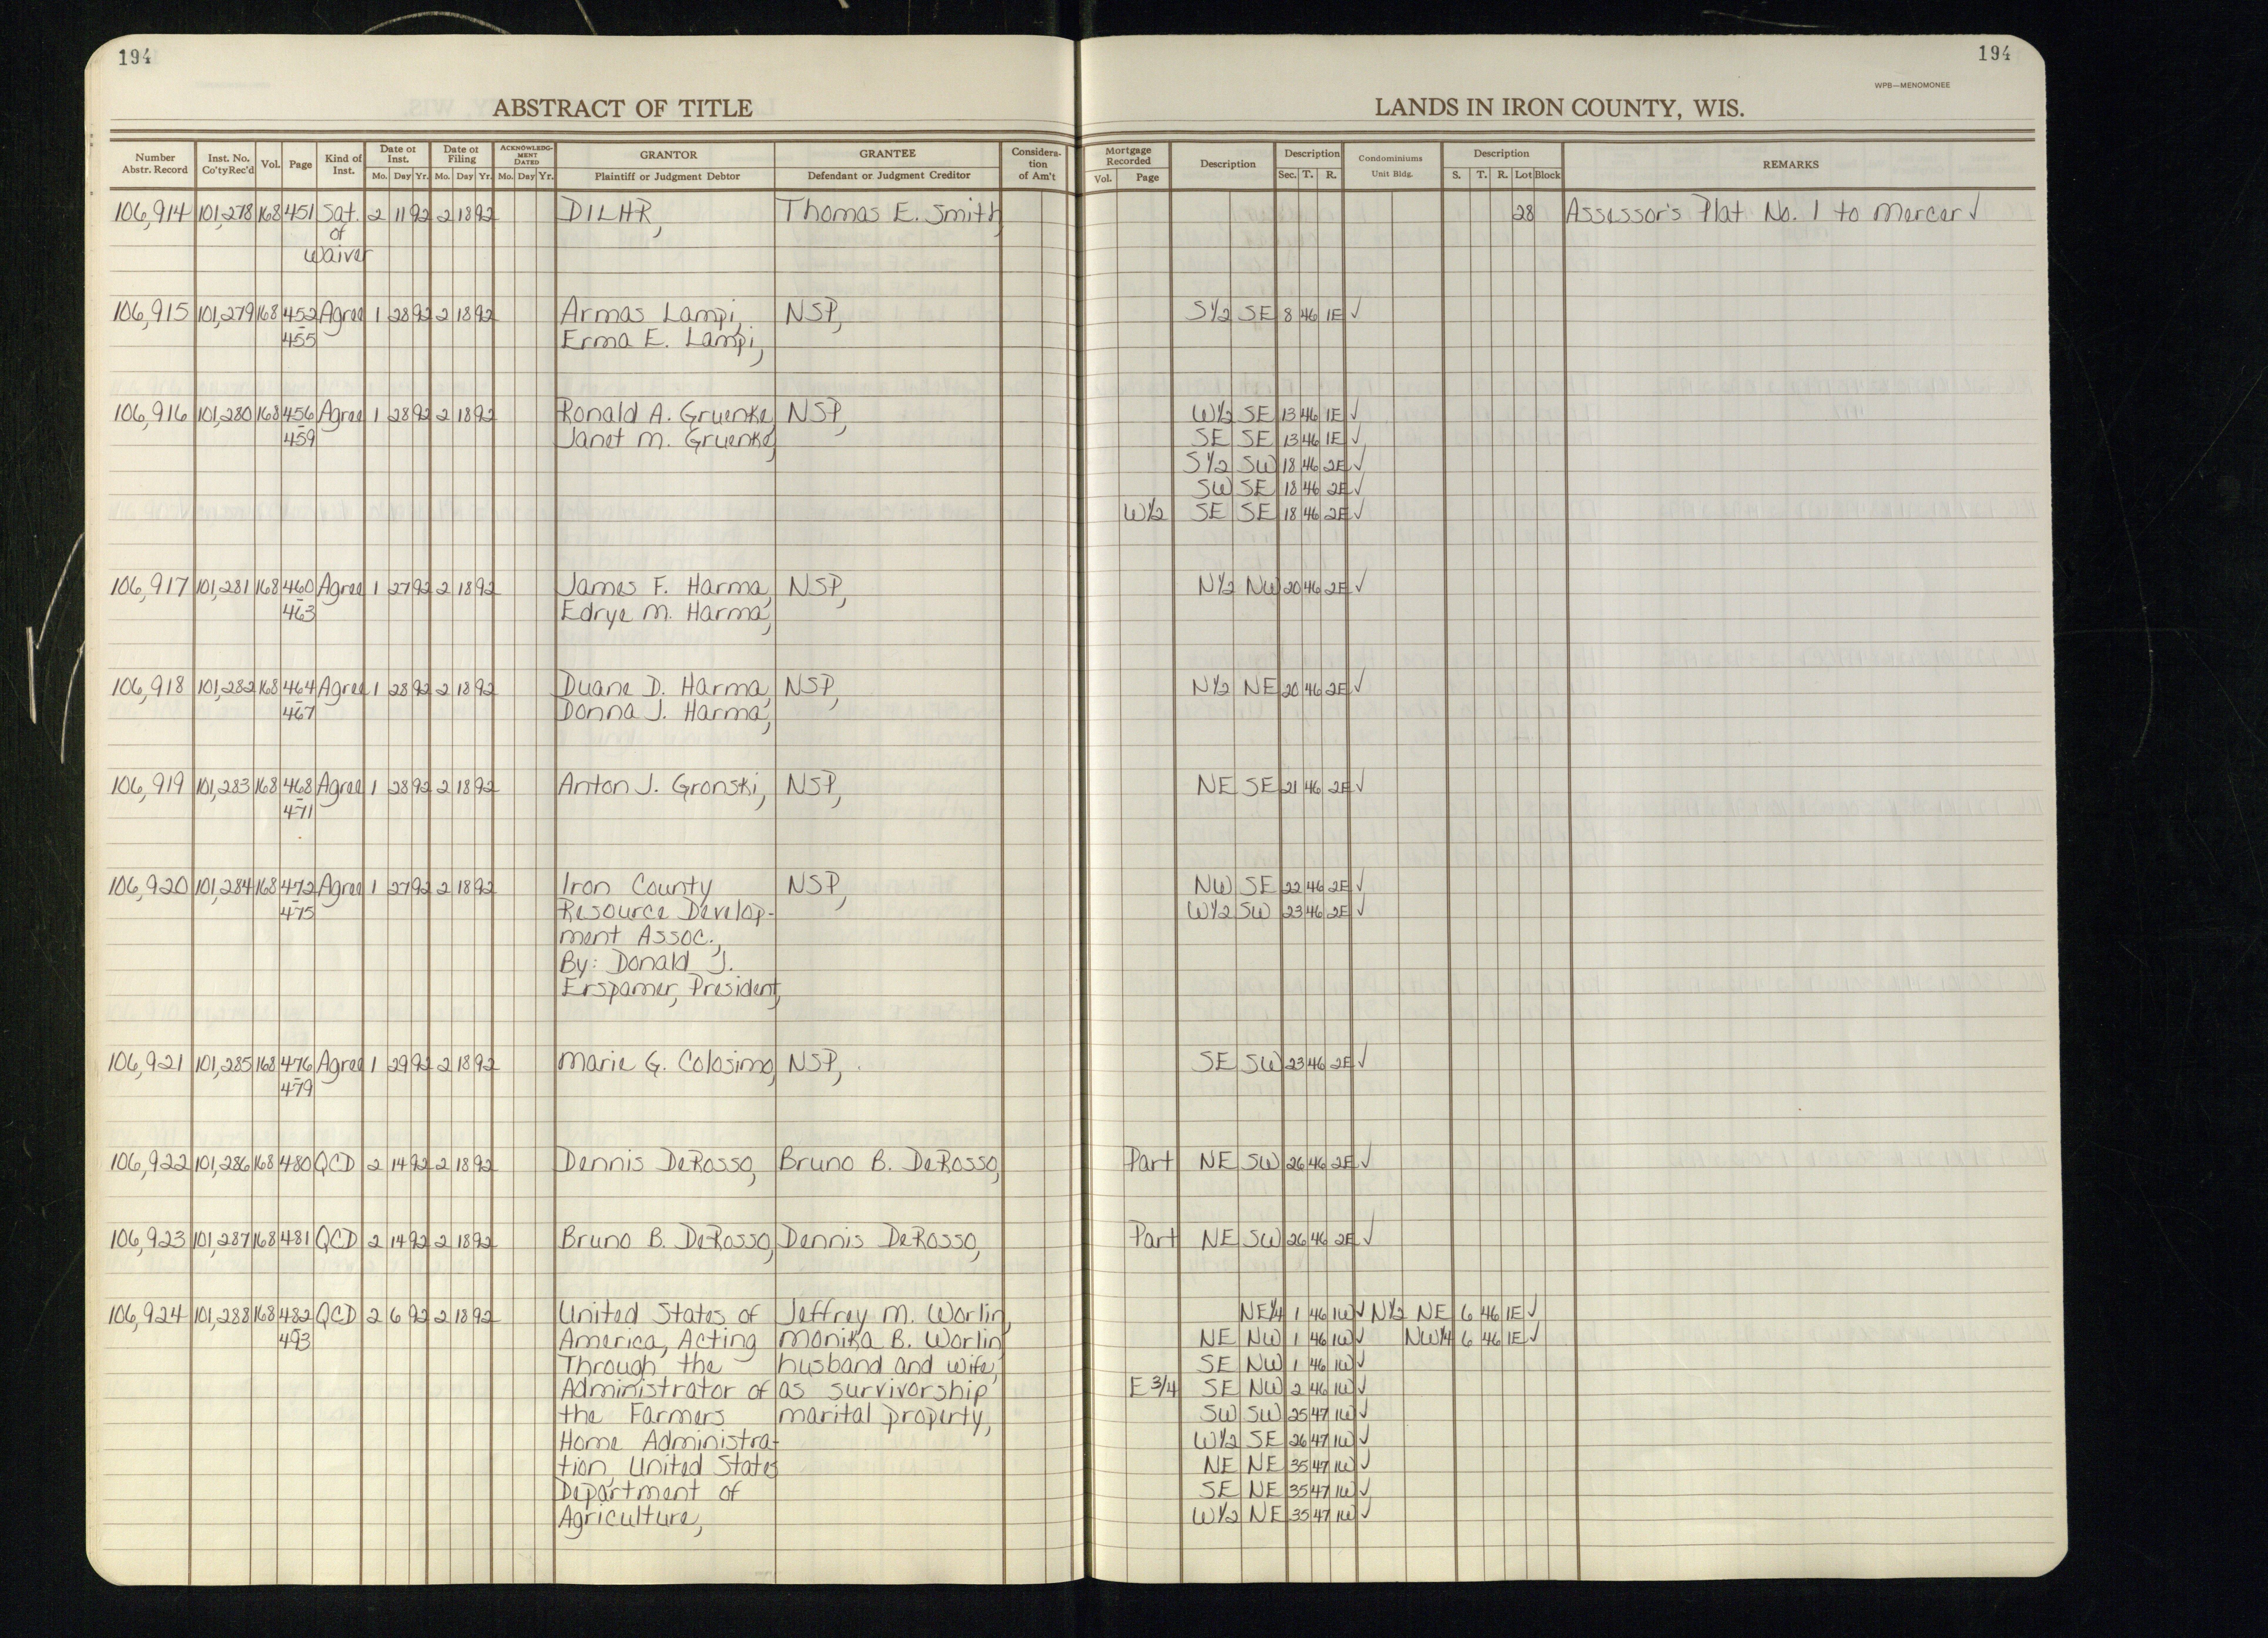 194
194
WPB—MENOMONEE
ABSTRACT OF TITLE
LANDS IN IRON COUNTY, WIS.
Number Abstr. Record | Inst. No. Co'ty Rec'd | Vol. | Page | Kind of Inst. | Date of Inst. Mo. Day Yr. | Date of Filing Mo. Day Yr. | ACKNOWLEDGMENT DATED Mo. Day Yr. | GRANTOR Plaintiff or Judgment Debtor | GRANTEE Defendant or Judgment Creditor | Consideration of Am't | Mortgage Recorded Vol. Page | Description | Description Sec. T. R. | Condominiums Unit Bldg. | Description S. T. R. Lot Block | REMARKS
106,914 101,278 168 451 Sat. 2 11 92 2 18 92 DILHR, Thomas E. Smith, 28 Assessor's Plat No. 1 to Mercer ✓
of
Waiver
106,915 101,279 168 452 Agree 1 28 92 2 18 92 Armas Lampi, NSP, S½ SE 8 46 1E ✓
-455 Erma E. Lampi,
106,916 101,280 168 456 Agree 1 28 92 2 18 92 Ronald A. Gruenke, NSP, W½ SE 13 46 1E ✓
-459 Janet M. Gruenke, SE SE 13 46 1E ✓
S½ SW 18 46 2E ✓
SW SE 18 46 2E ✓
W½ SE SE 18 46 2E ✓
106,917 101,281 168 460 Agree 1 27 92 2 18 92 James F. Harma, NSP, N½ NW 20 46 2E ✓
-463 Edrye M. Harma,
106,918 101,282 168 464 Agree 1 28 92 2 18 92 Duane D. Harma, NSP, N½ NE 20 46 2E ✓
-467 Donna J. Harma,
106,919 101,283 168 468 Agree 1 28 92 2 18 92 Anton J. Gronski, NSP, NE SE 21 46 2E ✓
-471
106,920 101,284 168 472 Agree 1 27 92 2 18 92 Iron County NSP, NW SE 22 46 2E ✓
-475 Resource Develop- W½ SW 23 46 2E ✓
ment Assoc.,
By: Donald J.
Erspamer, President,
106,921 101,285 168 476 Agree 1 29 92 2 18 92 Marie G. Colosimo, NSP, SE SW 23 46 2E ✓
-479
106,922 101,286 168 480 QCD 2 14 92 2 18 92 Dennis DeRosso, Bruno B. DeRosso, Part NE SW 26 46 2E ✓
106,923 101,287 168 481 QCD 2 14 92 2 18 92 Bruno B. DeRosso, Dennis DeRosso, Part NE SW 26 46 2E ✓
106,924 101,288 168 482 QCD 2 6 92 2 18 92 United States of Jeffrey M. Worlin, NE¼ 1 46 1W ✓ N½ NE 6 46 1E ✓
-493 America, Acting Monika B. Worlin NE NW 1 46 1W ✓ NW¼ 6 46 1E ✓
Through the husband and wife, SE NW 1 46 1W ✓
Administrator of as survivorship E 3/4 SE NW 2 46 1W ✓
the Farmers marital property, SW SW 25 47 1W ✓
Home Administra- W½ SE 26 47 1W ✓
tion, United States NE NE 35 47 1W ✓
Department of SE NE 35 47 1W ✓
Agriculture, W½ NE 35 47 1W ✓